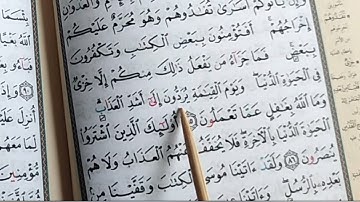 وَإِن يَأْتُوكُمْ أُسَٰرَىٰ تُفَٰدُوهُمْ وَهُوَ مُحَرَّمٌ عَلَيْكُمْ
إِخْرَاجُهُمْ ۚ أَفَتُؤْمِنُونَ بِبَعْضِ ٱلْكِتَٰبِ وَتَكْفُرُونَ
بِبَعْضٍ ۚ فَمَا جَزَآءُ مَن يَفْعَلُ ذَٰلِكَ مِنكُمْ إِلَّا خِزْىٌ
فِى ٱلْحَيَوٰةِ ٱلدُّنْيَا ۖ وَيَوْمَ ٱلْقِيَٰمَةِ يُرَدُّونَ إِلَىٰٓ أَشَدِّ ٱلْعَذَابِ ۗ
وَمَا ٱللَّهُ بِغَٰفِلٍ عَمَّا تَعْمَلُونَ أُو۟لَٰٓئِكَ ٱلَّذِينَ ٱشْتَرَوُا۟
ٱلْحَيَوٰةَ ٱلدُّنْيَا بِٱلْءَاخِرَةِ ۖ فَلَا يُخَفَّفُ عَنْهُمُ ٱلْعَذَابُ وَلَا هُمْ
يُنصَرُونَ ٨٦ وَلَقَدْ ءَاتَيْنَا مُوسَى ٱلْكِتَٰبَ وَقَفَّيْنَا مِنۢ
بَعْدِهِۦ بِٱلرُّسُلِ ۖ وَءَاتَيْنَا